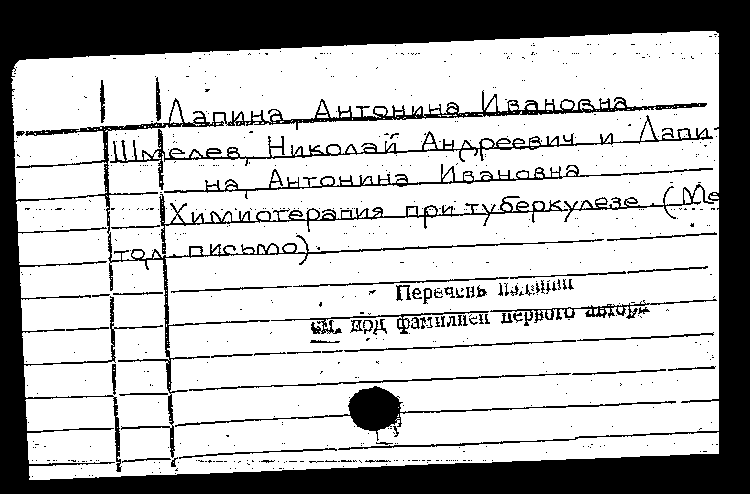 Лапина, Антонина Ивановна
Шмелев, Николай Андреевич и Лапи-
на, Антонина Ивановна
Химиотерапия при туберкулезе. (Ме
тод. письмо).
Перечень изданий
см. под фамилией первого автора